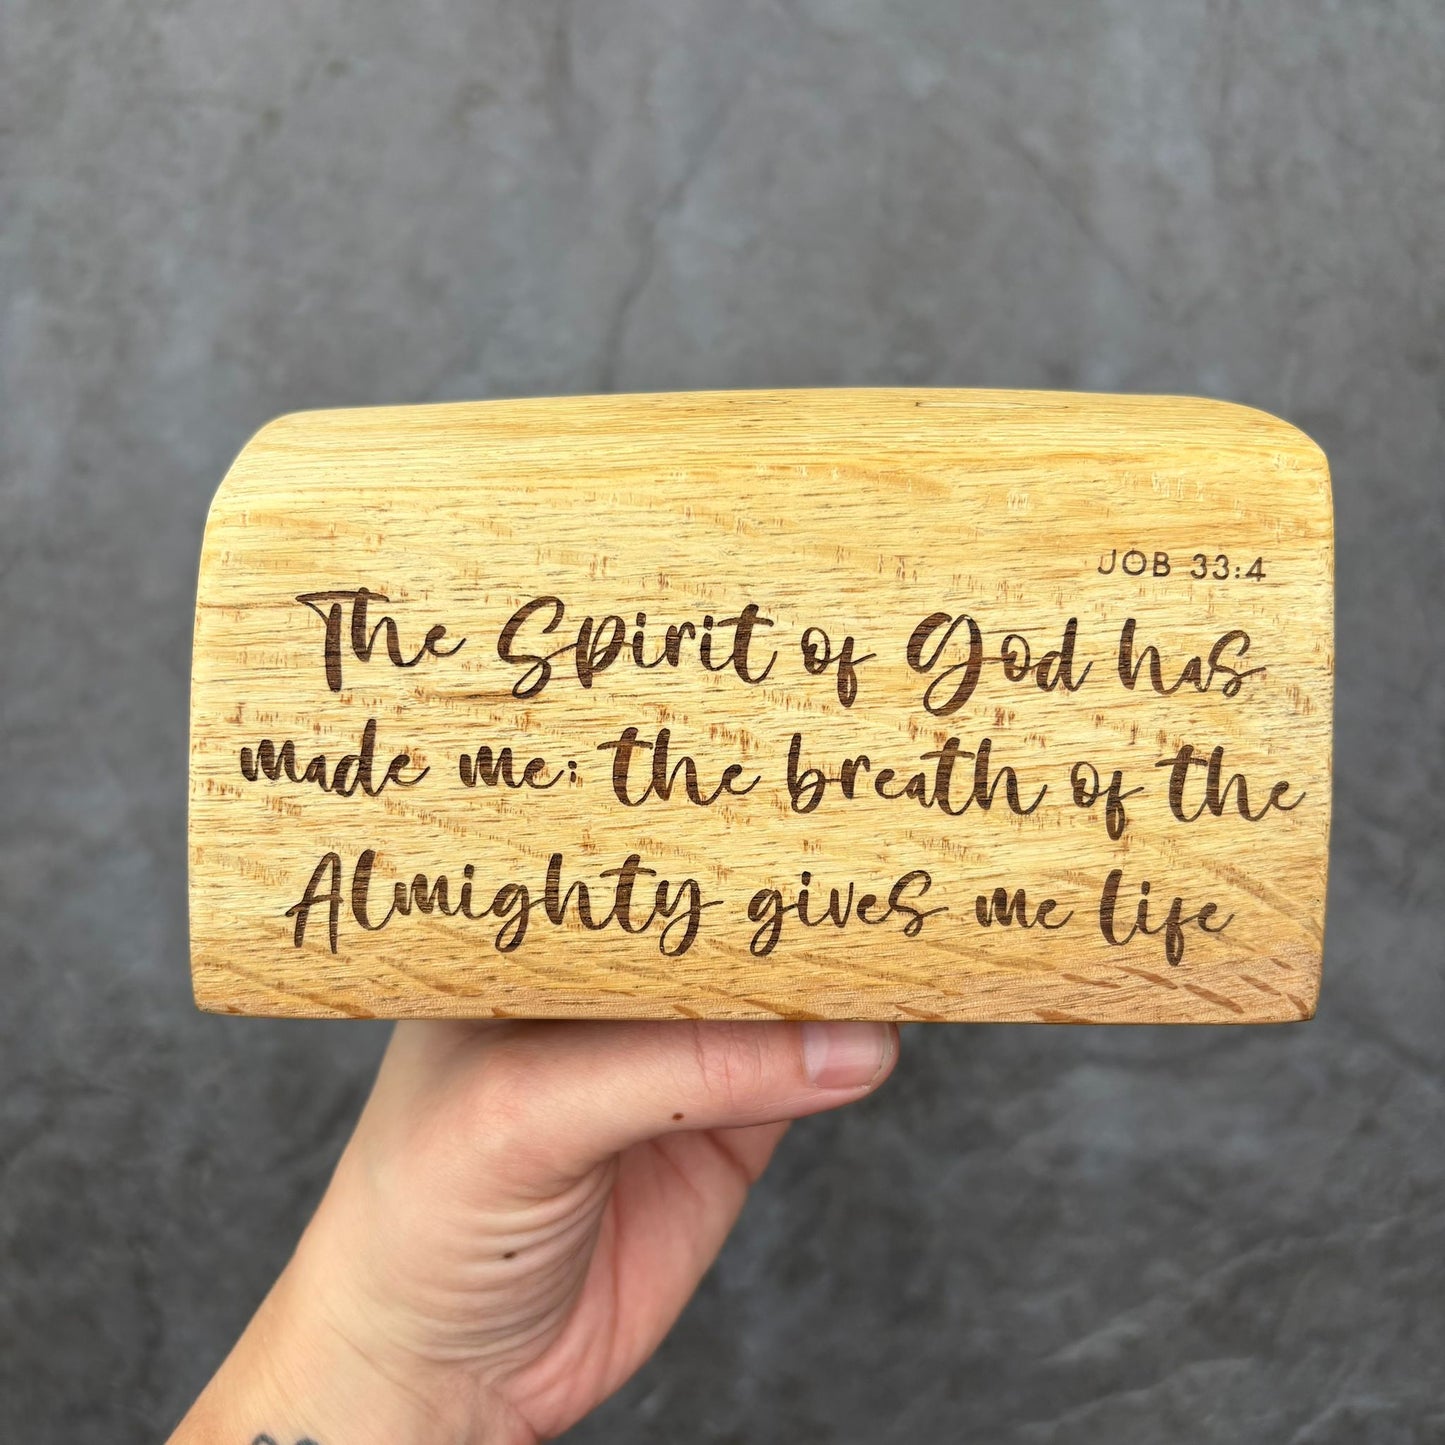 JOB 33:4
The Spirit of God has
made me; the breath of the
Almighty gives me life